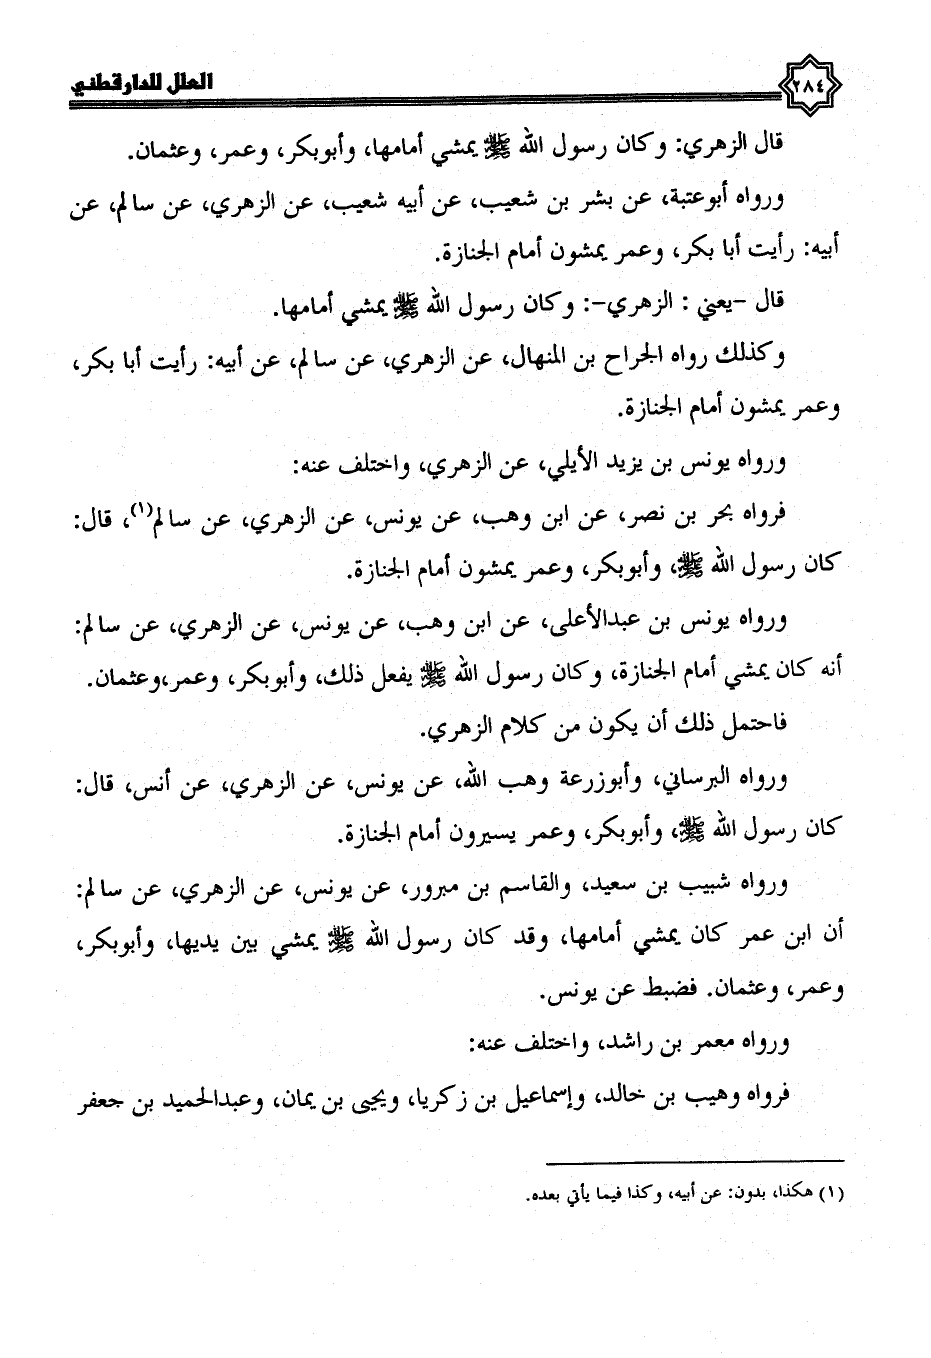 ٢٨٤
العلل للدارقطني
قال الزهري: وكان رسول الله ﷺ يمشي أمامها، وأبوبكر، وعمر، وعثمان.
ورواه أبوعتبة، عن بشر بن شعيب، عن أبيه شعيب، عن الزهري، عن سالم، عن
أبيه: رأيت أبا بكر، وعمر يمشون أمام الجنازة.
قال -يعني : الزهري-: وكان رسول الله ﷺ يمشي أمامها.
وكذلك رواه الجراح بن المنهال، عن الزهري، عن سالم، عن أبيه: رأيت أبا بكر،
وعمر يمشون أمام الجنازة.
ورواه يونس بن يزيد الأيلي، عن الزهري، واختلف عنه:
فرواه بحر بن نصر، عن ابن وهب، عن يونس، عن الزهري، عن سالم(١)، قال:
كان رسول الله ﷺ، وأبوبكر، وعمر يمشون أمام الجنازة.
ورواه يونس بن عبدالأعلى، عن ابن وهب، عن يونس، عن الزهري، عن سالم:
أنه كان يمشي أمام الجنازة، وكان رسول الله ﷺ يفعل ذلك، وأبوبكر، وعمر،وعثمان.
فاحتمل ذلك أن يكون من كلام الزهري.
ورواه البرساني، وأبوزرعة وهب الله، عن يونس، عن الزهري، عن أنس، قال:
كان رسول الله ﷺ، وأبوبكر، وعمر يسيرون أمام الجنازة.
ورواه شبيب بن سعيد، والقاسم بن مبرور، عن يونس، عن الزهري، عن سالم:
أن ابن عمر كان يمشي أمامها، وقد كان رسول الله ﷺ يمشي بين يديها، وأبوبكر،
وعمر، وعثمان. فضبط عن يونس.
ورواه معمر بن راشد، واختلف عنه:
فرواه وهيب بن خالد، وإسماعيل بن زكريا، ويحيى بن يمان، وعبدالحميد بن جعفر
(١) هكذا، بدون: عن أبيه، وكذا فيما يأتي بعده.